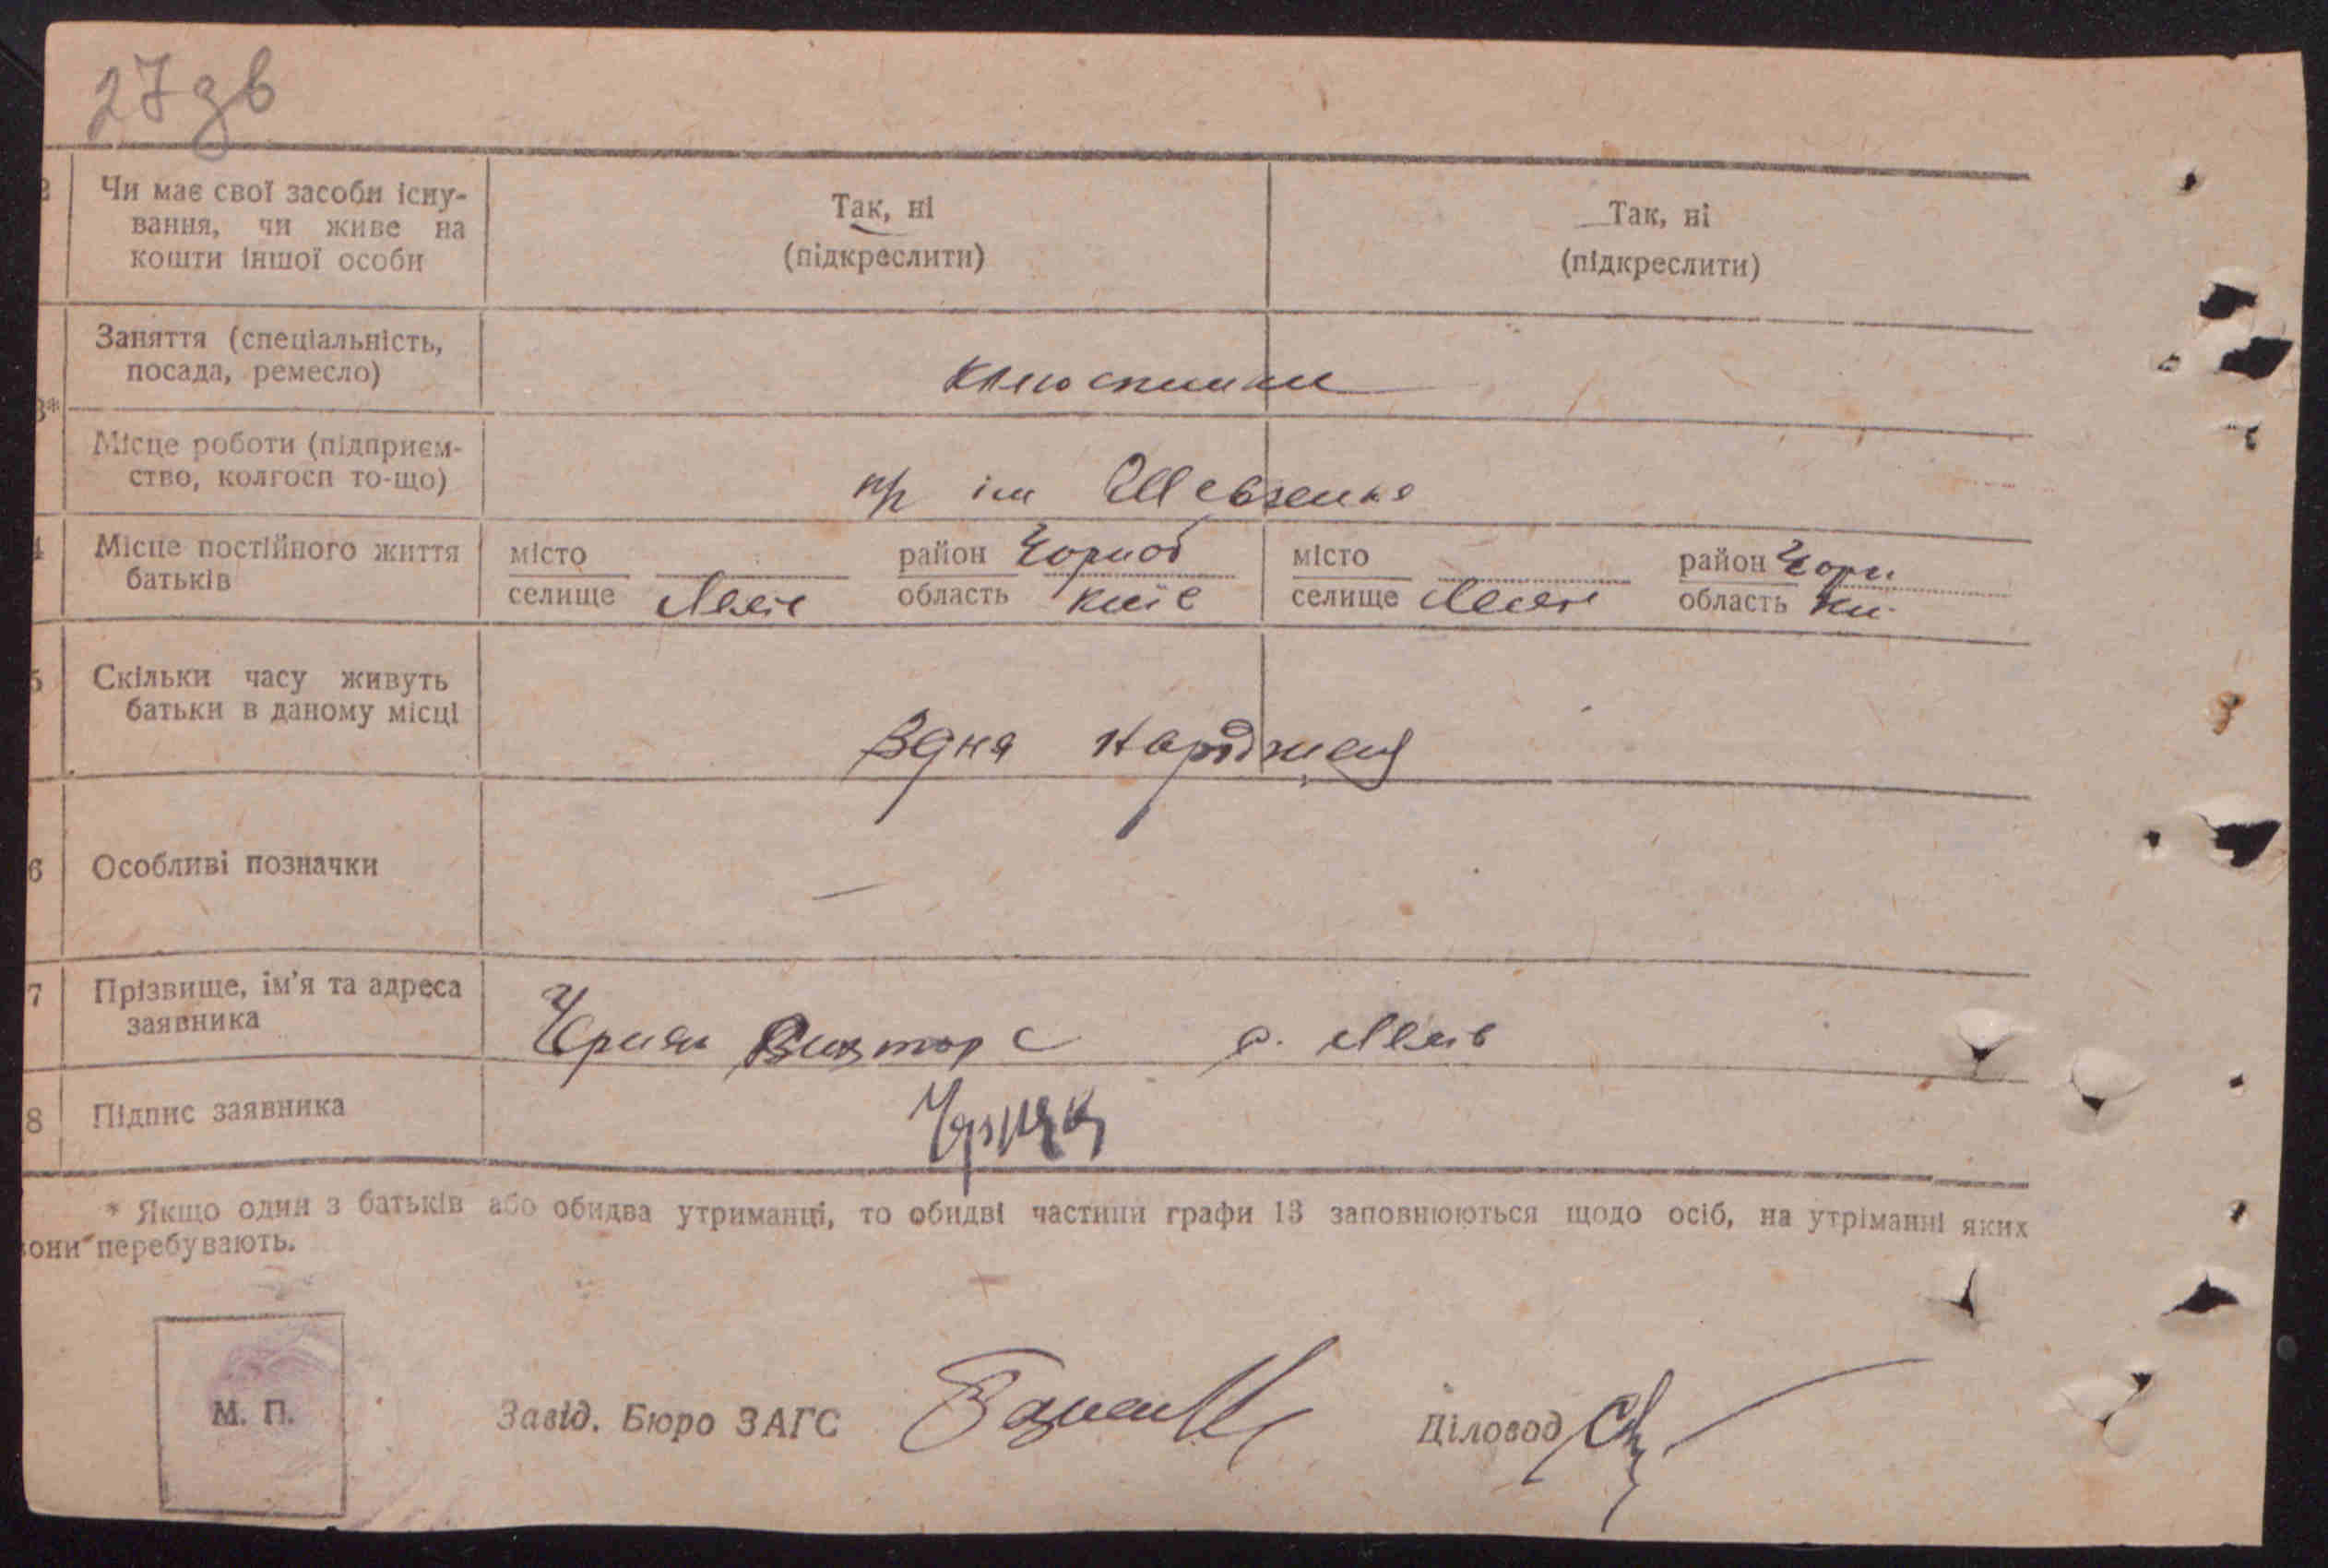 27зв
2 Чи має свої засоби існу-
вання, чи живе на
кошти іншої особи
Так, ні
(підкреслити)
Так, ні
(підкреслити)
3*
Заняття (спеціальність,
посада, ремесло)
Місце роботи (підприєм-
ство, колгосп то-що)
ім Шевченка
4 Місце постійного життя
батьків
місто район Чорноб
селище область Київ
місто район Чорн
селище область Ки.
5 Скільки часу живуть
батьки в даному місці
З дня народження
6 Особливі позначки
—
7 Прізвище, ім'я та адреса
заявника
Черняк Виктор с с.
8 Підпис заявника
Черняк
* Якщо один з батьків або обидва утриманці, то обидві частини графи 13 заповнюються щодо осіб, на утріманні яких
вони перебувають.
М. П.
Завід. Бюро ЗАГС
Діловод